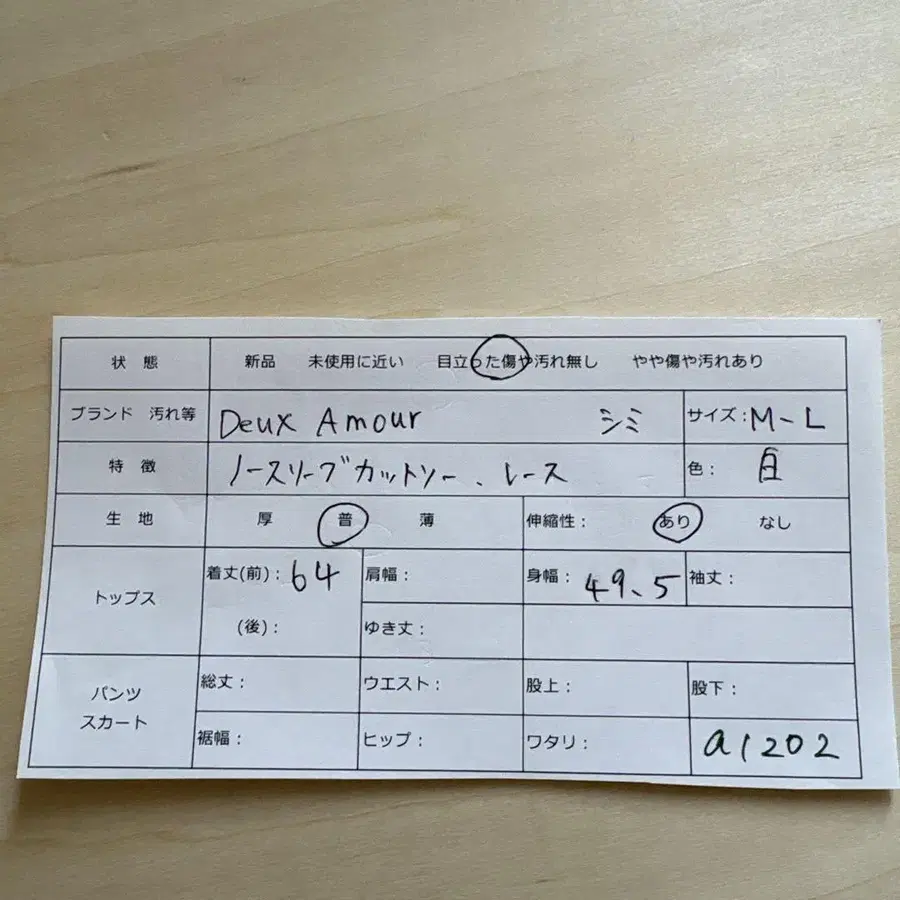 状 態 新品 未使用に近い 目立った傷や汚れ無し やや傷や汚れあり
ブランド 汚れ等 Deux Amour シミ サイズ:M-L
特 徴 ノースリーブカットソー、レース 色: 白
生 地 厚 普 薄 伸縮性: あり なし
トップス 着丈(前):64 肩幅: 身幅:49.5 袖丈:
(後): ゆき丈:
パンツ スカート 総丈: ウエスト: 股上: 股下:
裾幅: ヒップ: ワタリ: a1202